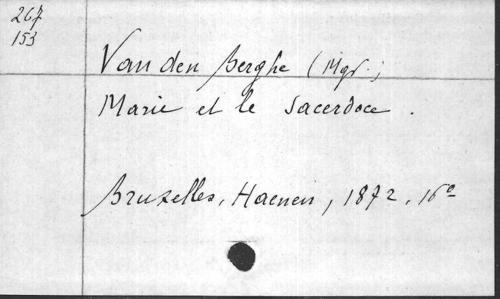 267
153
Van den Berghe (Mgr.)
Marie et le Sacerdoce.
Bruxelles, Haenen, 1872, 16º